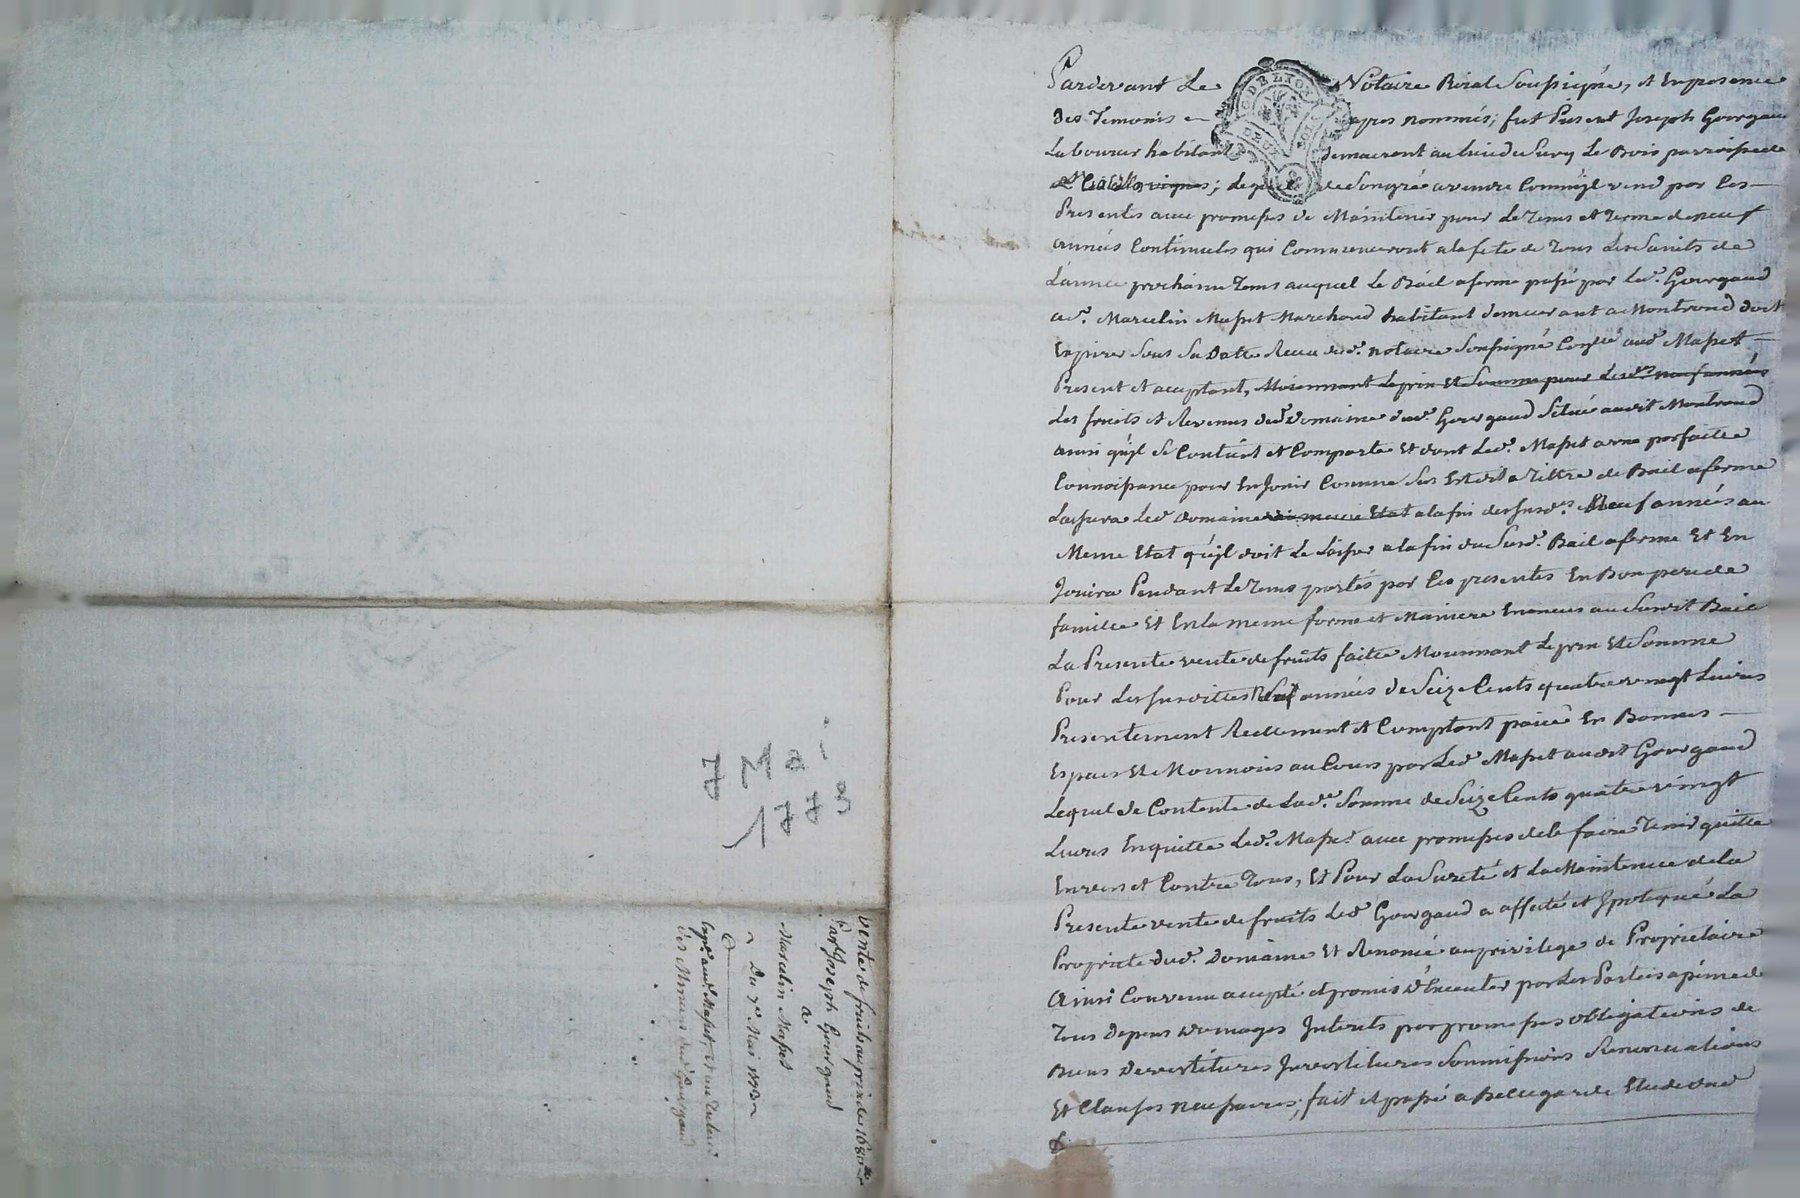 Pardevant Le Notaire Roial Soussigné, et En presence
Des Temoins en apres nommés; fut Present Joseph Gourgaud
Laboureur habitant demeurant au lieu du Sury Le Bois parroisse de
; Lequel de Son gré a vendu Comm'jl vend par Ces
Presentes avec promesses de Maintenir pour Le Tems et Terme de neuf
années Continuelles qui Commenceront a la fete de Tous Les Saints de
L'année prochaine Tems auquel Le Bail a ferme passé par Led. Gourgaud
a Sr. Marcelin Masset Marchand habitant demeurant a Montrond doit
Expirer Sous Sa Datte Receu dud. notaire Soussigné aud Masset
Present et acceptant, Moiennant Le prix Et Somme pour Lesdes neuf années
Les fruits et Revenus dud Domaine dud. Gourgaud Situé audit Montrond
ainsi qu'jl Se Contient et Comporte Et dont Led. Masset a une parfaitte
Connoissance pour En Jouir Comme Sus Est dit a Tittre de Bail a ferme
Laissera Led Domaine au meme Etat a la fin des susd. Neuf années au
Meme Etat qu'jl doit Le Laisser a la fin du Susd. Bail a ferme Et En
Jouira Pendant Le Tems portés par Les presentes En Bon pere de
famille Et En la meme forme et Maniere Enoncés au Susdit Bail
La Presente vente de fruits faitte Moiennant Le prix Et Somme
Pour Les susdittes Neuf années de Seize Cents quatre vingt Livres
Presentement Reellement et Comptant paiée En Bonnes
Espaces Et Monnoies au Cours par Led Masset audit Gourgaud
Lequel Se Contente de Lade. Somme de Seize Cents quatre vingt
Livres En quitte Led. Masset avec promesses de le faire Tenir quitte
Envers et Contre Tous, Et Pour La Sureté et La Maintenue de la
Presente vente de fruits Led Gourgaud a affecté et Jpotequé La
Propriete dud. Domaine Et Renoncé au privilege de Proprietaire
Ainsi Convenu accepté et promis d'Executer par Les Parties a peine de
Tous Depens Domages Interets par promesses obligations de
Biens Devestitures Jnvestitures Soumissions Renonciations
Et Clauses necessaires; fait et passé a Bellegarde Etude dud
&
7 Mai
1773
Vente de fruits au prix de 1680 ₶
Par Joseph Gourgaud
a
Marcelin Masset
Du 7e Mai 1773
aud. Masset,
des dud. Gourgaud